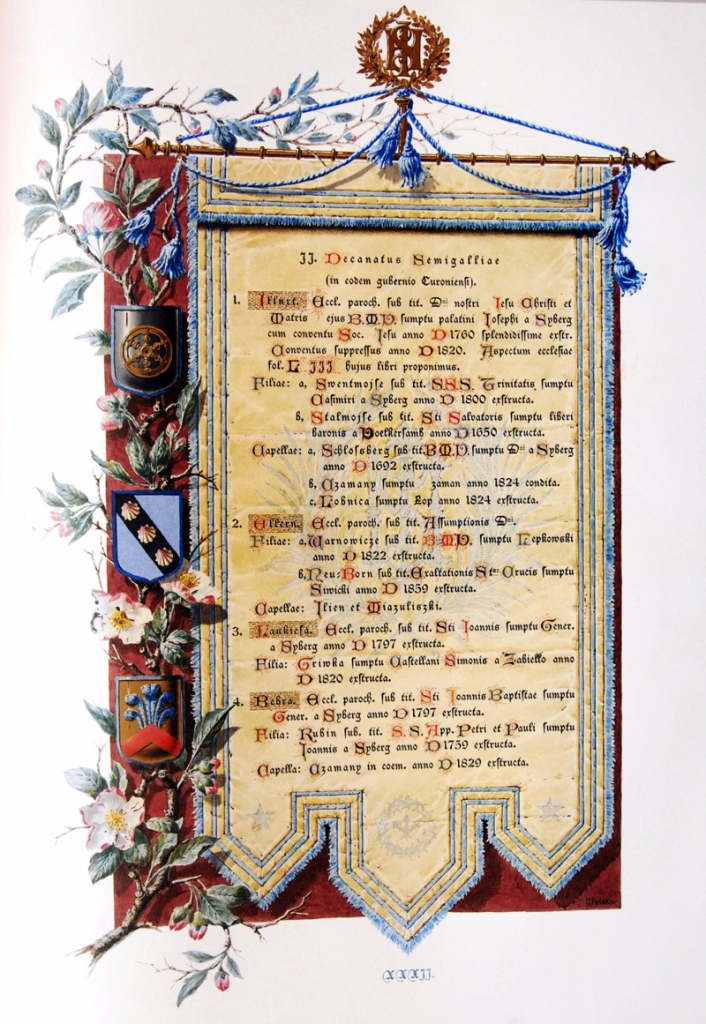 II. Decanatus Semigalliae
(in eodem gubernio Curoniensi).
1. Illuxt. Eccl. paroch. sub tit. Dni nostri Iesu Christi et
Matris ejus B.M.V. sumptu palatini Iosephi a Syberg
cum conventu Soc. Iesu anno D 1760 splendidissime exstr.
Conventus suppressus anno D 1820. Aspectum ecclesiae
fol. L III hujus libri proponimus.
Filiae: a, Swentmojse sub tit. S.S.S. Trinitatis sumptu
Casimiri a Syberg anno D 1800 exstructa.
b, Stalmojse sub tit. Sti Salvatoris sumptu liberi
baronis a Voelkersamb anno D 1650 exstructa.
Capellae: a, Schlossberg sub tit. B.M.V. sumptu Dni a Syberg
anno D 1692 exstructa.
b, Czamany sumptu zaman anno 1824 condita.
c, Lobnica sumptu Lop anno 1824 exstructa.
2. Ellern. Eccl. paroch. sub tit. Assumptionis Dni.
Filiae: a, Warnowicze sub tit. B.M.V. sumptu Lepkowski
anno D 1822 exstructa.
b, Neu-Born sub tit. Exaltationis Stae Crucis sumptu
Siwicki anno D 1859 exstructa.
Capellae: Ilien et Miazuliszki.
3. Laukiesa. Eccl. paroch. sub tit. Sti Ioannis sumptu Gener.
a Syberg anno D 1797 exstructa.
Filia: Griwka sumptu Castellani Simonis a Zabiello anno
D 1820 exstructa.
4. Bebra. Eccl. paroch. sub tit. Sti Ioannis Baptistae sumptu
Gener. a Syberg anno D 1797 exstructa.
Filia: Rubin sub. tit. S.S. App. Petri et Pauli sumptu
Ioannis a Syberg anno D 1759 exstructa.
Capella: Czamany in coem. anno D 1829 exstructa.
XXXII.